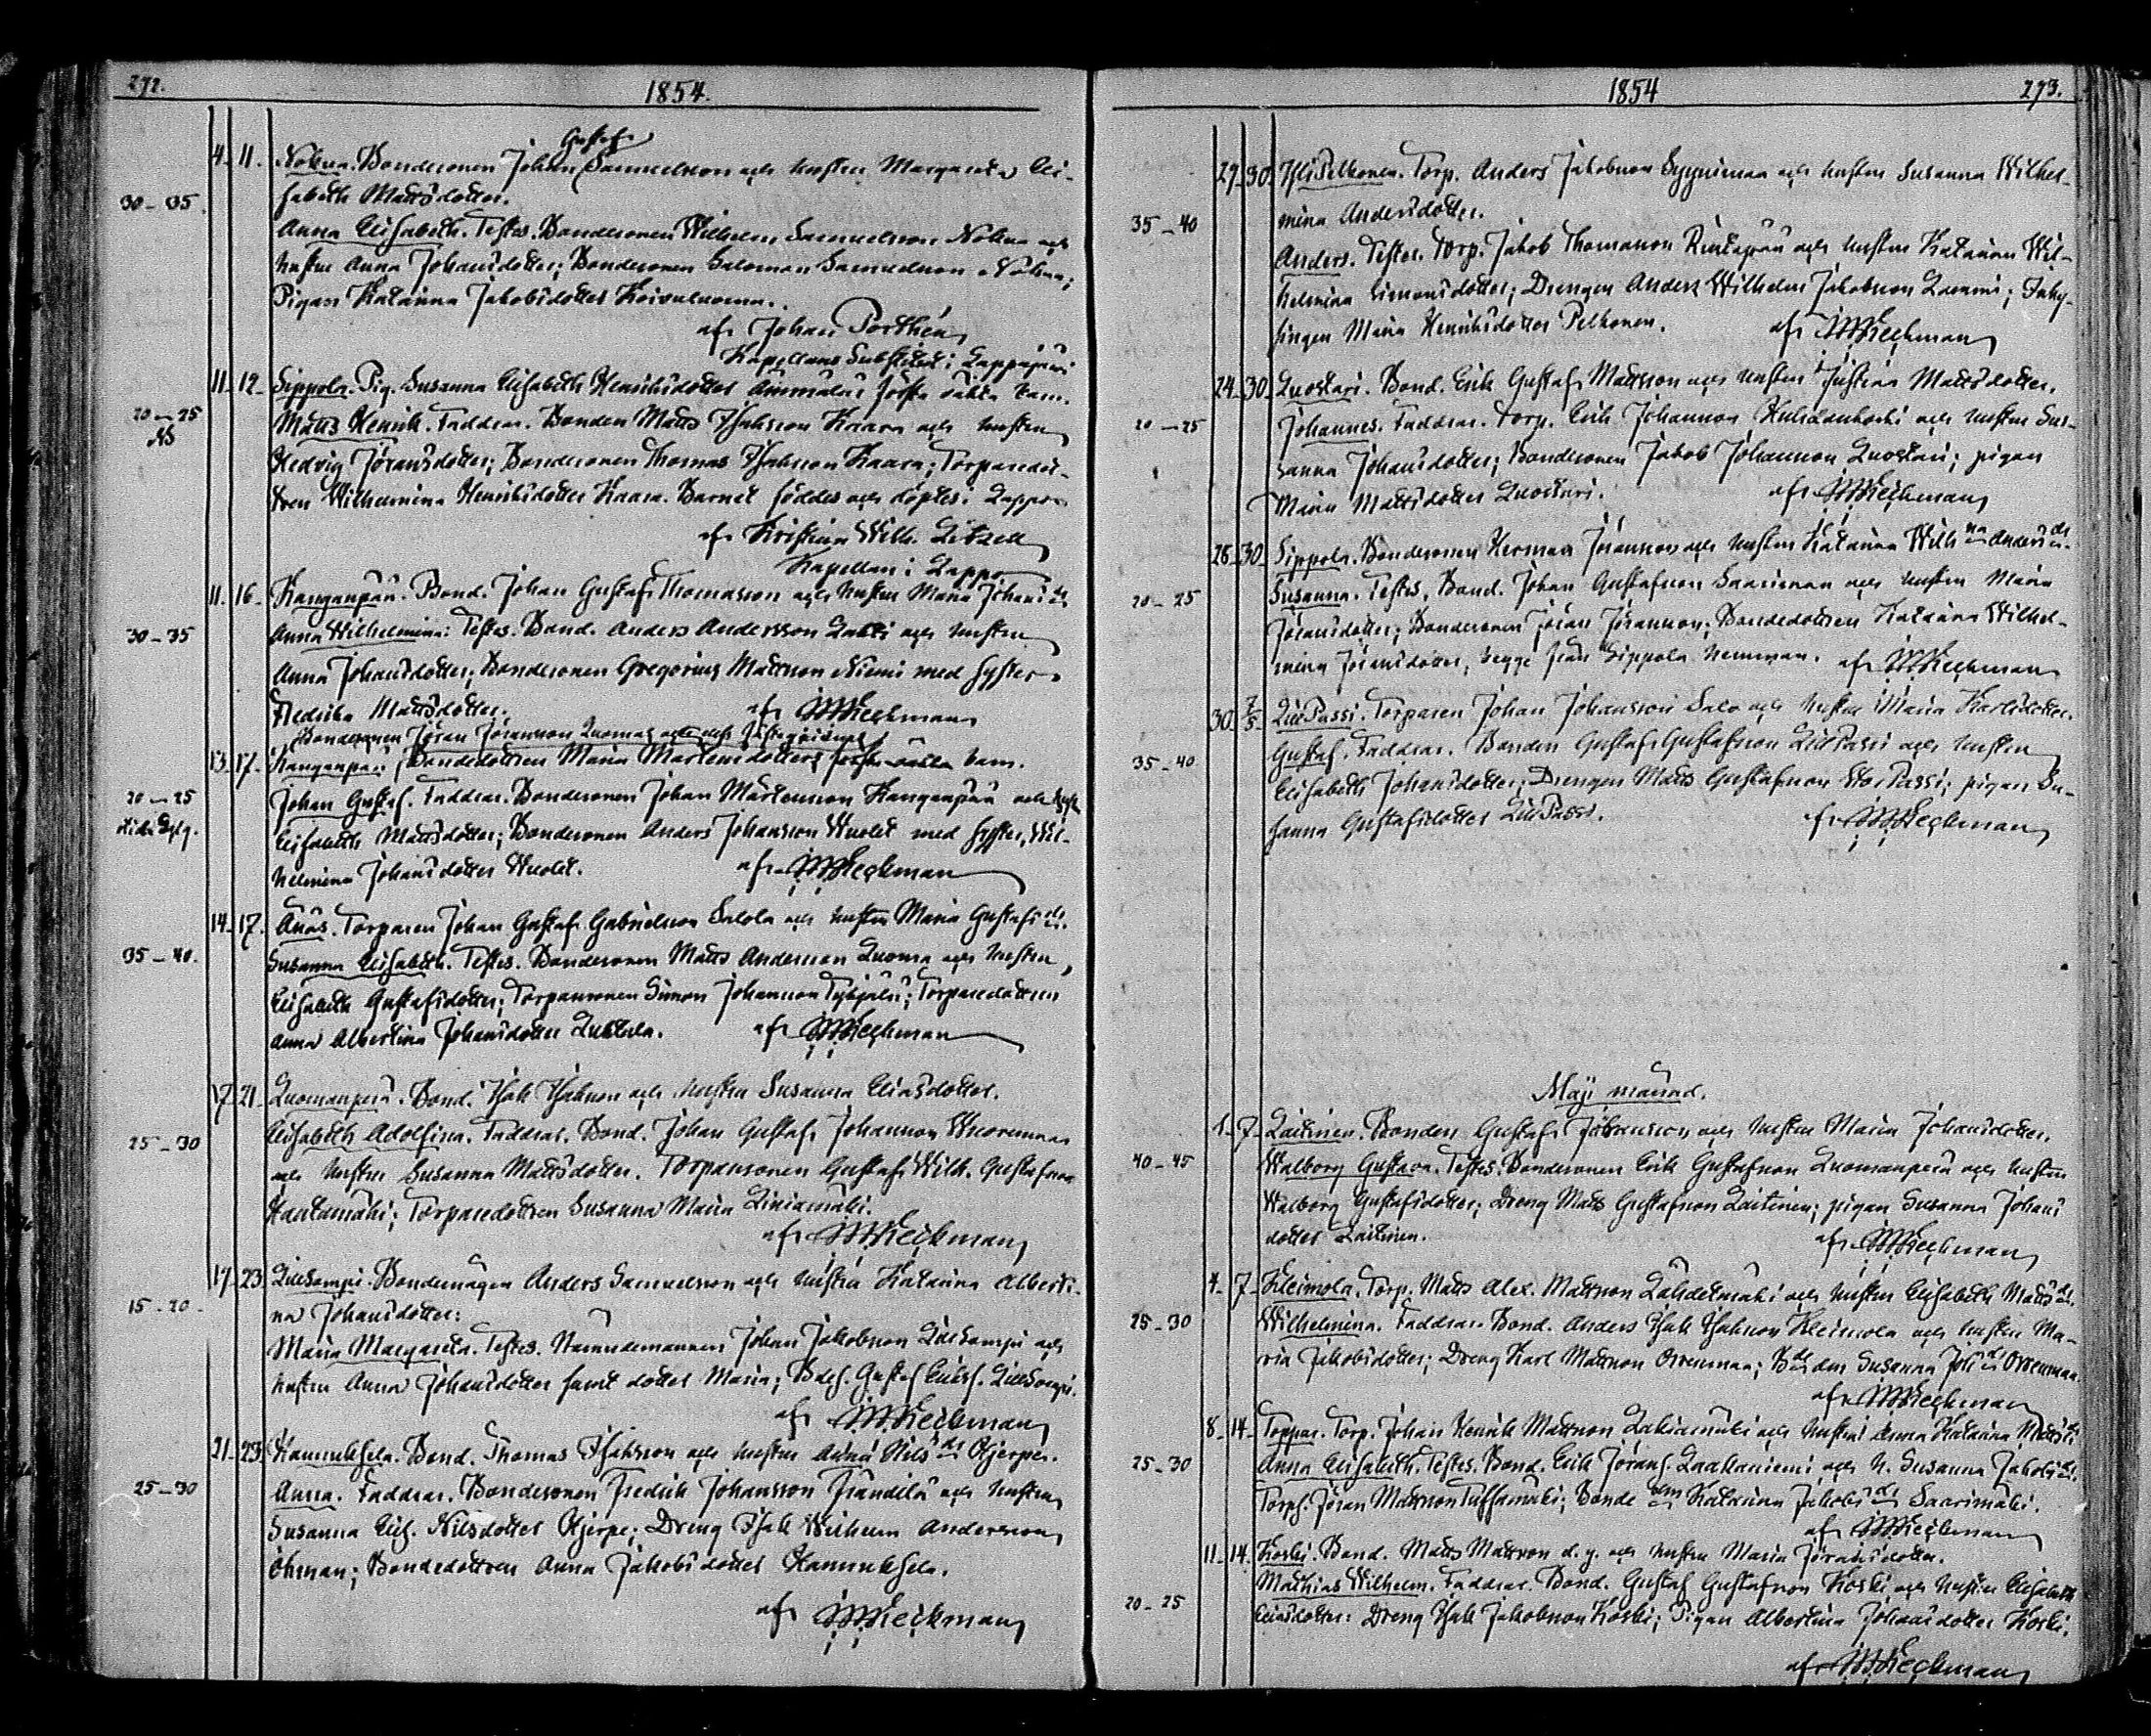 272.
1854.
Gustaf
4. 11. Nokua. Bondesonen Johan Samuelsson och hustru Margareta Eli-
30-35. sabeth Mattsdotter.
Anna Elisabeth. Testes. Bondesonen Wilhelm Samuelsson Nokua och
hustru Anna Johansdotter; Bondesonen Salomon Samuelsson Nokua;
Pigan Katarina Jakobsdotter
af Johan Porthén
Kapellans Substitut i Lappajärvi
11. 12. Sippola. Pig. Susanna Elisabeth Henriksdotters första oäkta barn.
20-25 Matts Henrik. Faddrar. Bonden Matts Isaksson Kaara och hustru
Hedvig Jöransdotter; Bondesonen Thomas Isaksson Kaara; Torparedot-
tren Wilhelmina Henriksdotter Kaara. Barnet föddes och döptes i Lappo
af Kristian Wilh.
Kapellan i Lappo
11. 16. Kanganpää. Bond. Johan Gustaf Thomasson och hustru Maria Johansdr
30-35 Anna Wilhelmina. Testes. Bond. Anders Andersson och hustru
Anna Johansdotter; Bondesonen Gregorius Mattsson Niemi med syster
Fredrika Mattsdotter. af Wieckman
Bondesonen Jöran Jöransson Luomas och
13. 17. Kanganpää; Bondedottren Maria Mårtensdotters första oäkta barn.
20-25 Johan Gustaf. Faddrar. Bondesonen Johan Mårtensson Kanganpää och hustr
Elisabeth Mattsdotter; Bondesonen Anders Johansson Wuolet med syster, Wil-
helmina Johansdotter Wuolet. af Wieckman
14. 17. Änäs. Torparen Johan Gustaf Gabrielsson Salola och hustru Maria Gustafsdr.
35-40. Susanna Elisabeth. Testes. Bondesonen Matts Andersson Luoma och hustru,
Elisabeth Gustafsdotter; Torparesonen Simon Johansson; Torparedottren
Anna Albertina Johansdotter. af Wieckman
17. 21. Luomanperä. Bond. Isak Isaksson och hustru Susanna Eliasdotter.
25-30 Elisabeth Adolfina. Faddrar. Bond. Johan Gustaf Johansson Wuorenmaa
och hustru Susanna Mattsdotter. Torparesonen Gustaf Wilh. Gustafsson
Hautamäki; Torparedottren Susanna Maria Liniamäki.
af Wieckman
17. 23. Lillsompi. Bondemågen Anders Samuelsson och hustru Katarina Alberti-
15-20. na Johansdotter:
Maria Margareta. Testes. Nämndemannen Johan Jakobsson Lillsompi och
hustru Anna Johansdotter samt dotter Maria; Gustaf Lillsompi.
af Wieckman
21. 23. Hannuksela. Bond. Thomas Isaksson och hustru Anna Nilsdr Hjerpe.
25-30 Anna. Faddrar. Bondesonen Fredrik Johansson Frändilä och hustru
Susanna Elis. Nilsdotter Hjerpe; Dreng Isak Wilhelm Andersson
Öhman; Bondedottren Anna Jakobsdotter Hannuksela.
af Wieckman
1854
273.
29. 30. Pelkonen. Torp. Anders Jakobsson Syynimaa och hustru Susanna Wilhel-
35-40 mina Andersdotter.
Anders. Testes. Torp. Jakob Thomasson Rintapää och hustru Katarina Wil-
helmina Simonsdotter; Drengen Anders Wilhelm Jakobsson Lammi; Inhy-
singen Maria Henriksdotter Pelkonen. af Wieckman
24. 30. Luostari. Bond. Erik Gustaf Mattsson och hustru Justina Mattsdotter.
20-25 Johannes. Faddrar. Torp. Erik Johansson och hustru Sus-
sanna Johansdotter; Bondesonen Jakob Johansson Luostari; pigan
Maria Mattsdotter Luostari. af Wieckman
28. 30. Sippola. Bondesonen Herman Jöransson och hustru Katarina Wilhna Andersdr.
20-25 Susanna. Testes. Bond. Johan Gustafsson Saarimaa och hustru Maria
Jöransdotter; Bondesonen Jöran Jöransson; Bondedottren Katarina Wilhel-
mina Jöransdotter, begge från Sippola hemman. af Wieckman
30. 7/5 LillPassi. Torparen Johan Johansson Salo och hustru Maria Karlsdotter.
35-40 Gustaf. Faddrar. Bonden Gustaf Gustafsson LillPassi och hustru
Elisabeth Johansdotter; Drengen Matts Gustafsson StorPassi; pigan Su-
sanna Gustafsdotter LillPassi. af Wieckman
Maji månad.
1. 7. Laitinen. Bonden Gustaf Johansson och hustru Maria Johansdotter.
40-45 Walborg Gustava. Testes. Bondesonen Erik Gustafsson Luomanperä och hustru
Walborg Gustafsdotter; Dreng Matts Gustafsson Laitinen; pigan Susanna Johans
dotter Laitinen. af Wieckman
4. 7. Kleimola. Torp. Matts Alex. Mattsson Lähdetmäki och hustru Elisabeth Mattsdr.
25-30 Wilhelmina. Faddrar. Bond. Anders Isak Isaksson Kleimola och hustru Ma-
ria Jakobsdotter; Dreng Karl Mattsson Orrenmaa; Susanna Orrenmaa.
af Wieckman
8. 14. Toppar. Torp. Johan Henrik Mattsson Lakiamäki och hustru Anna Katarina Mattsdr
25-30 Anna Elisabeth. Testes. Bond. Erik Jörans. Laakaniemi och h. Susanna Jakobsdr.
Torps. Jöran Mattsson; Bonde Katarina Jakobsdr Saarimäki.
af Wieckman
11. 14. Koski. Bond. Matts Mattsson d. y. och hustru Maria Jöransdotter.
20-25 Mathias Wilhelm. Faddrar. Bond. Gustaf Gustafsson Koski och hustru Elisabeth
Eliasdotter: Dreng Isak Jakobsson Koski; Pigan Albertina Johansdotter Koski.
af Wieckman